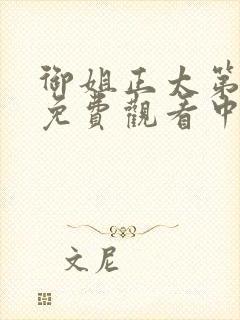 御姐正大第
免費觀看中
文尼